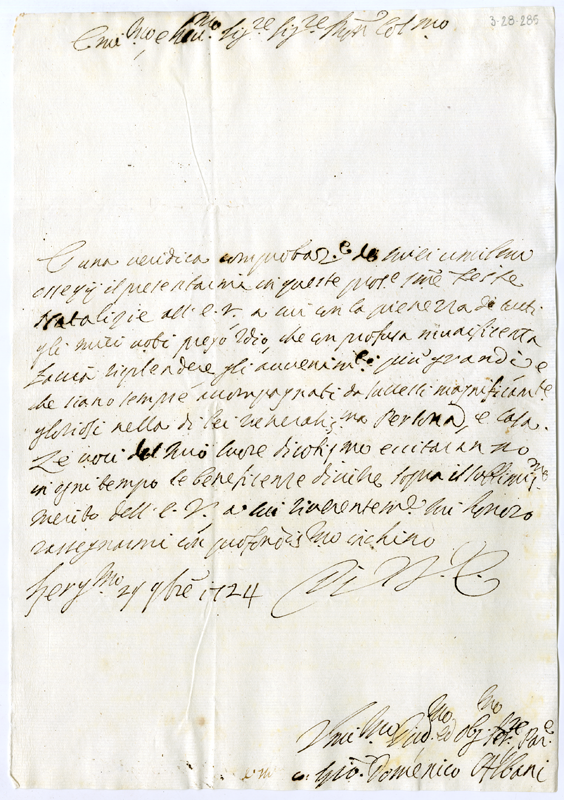 3-28-285
Emi.mo, e Reu.mo Sig.re Sig.re Pron Col.mo
E una veridica comprobaz.e de miei umilmi
ossequj il presentarmi in queste pros.e sme feste
Natalizie all'E.V. a cui con la pienezza di tutti
gli miei voti prego Iddio, che con profusa munificenza
faccia risplendere gli avvenim.ti più grandi, e
che siano sempre accompagnati da successi magnificam.te
gloriosi nella di lei veneratis.ma Persona, e Casa.
Le voci del mio cuore divotis.mo ecciteranno
in ogni tempo le beneficenze divine sopra il sublimis.mo
merito dell'E.V. a cui riverentem.e mi honoro
rassegnarmi con profondis.mo inchino
1724
Di V.E.
Umil.mo Diuo.mo Obg.mo Ser.re
Gio. Domenico Albani